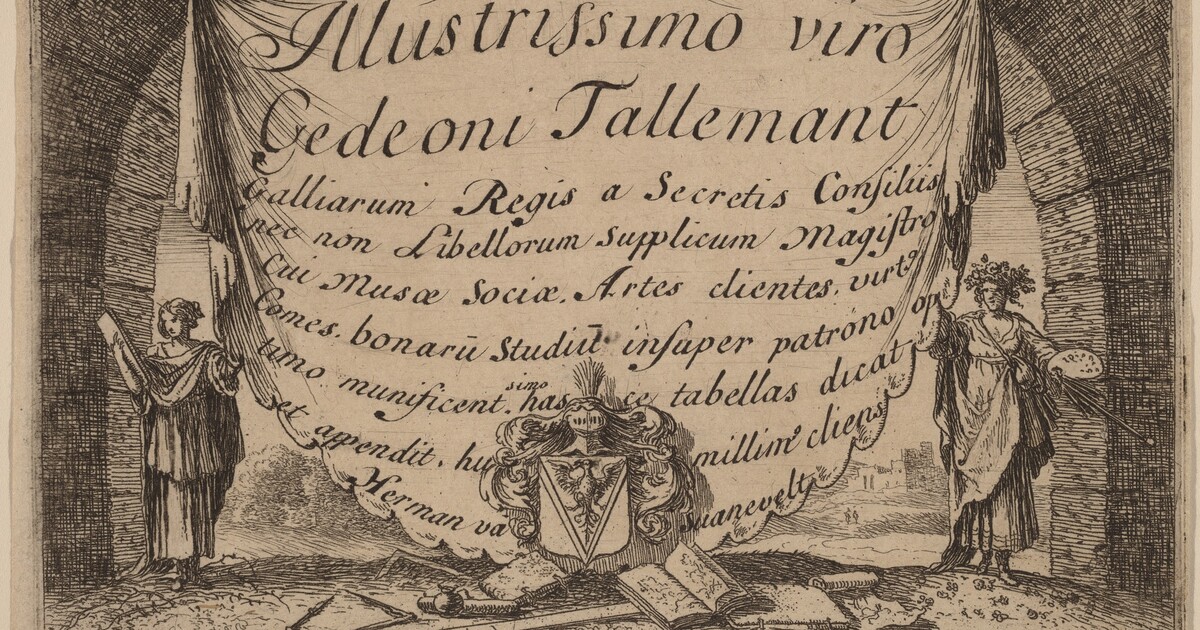 Illustrissimo viro
Gedeoni Tallemant
Galliarum Regis a Secretis Consiliis
nec non Libellorum supplicum Magistro
Cui Musæ Sociæ. Artes clientes. virt9
Comes. bonarū Studiūˑ insuper patrono op
timo munificent.simo hasce tabellas dicat
et appendit. humillim9 cliens
Herman va suanevelt